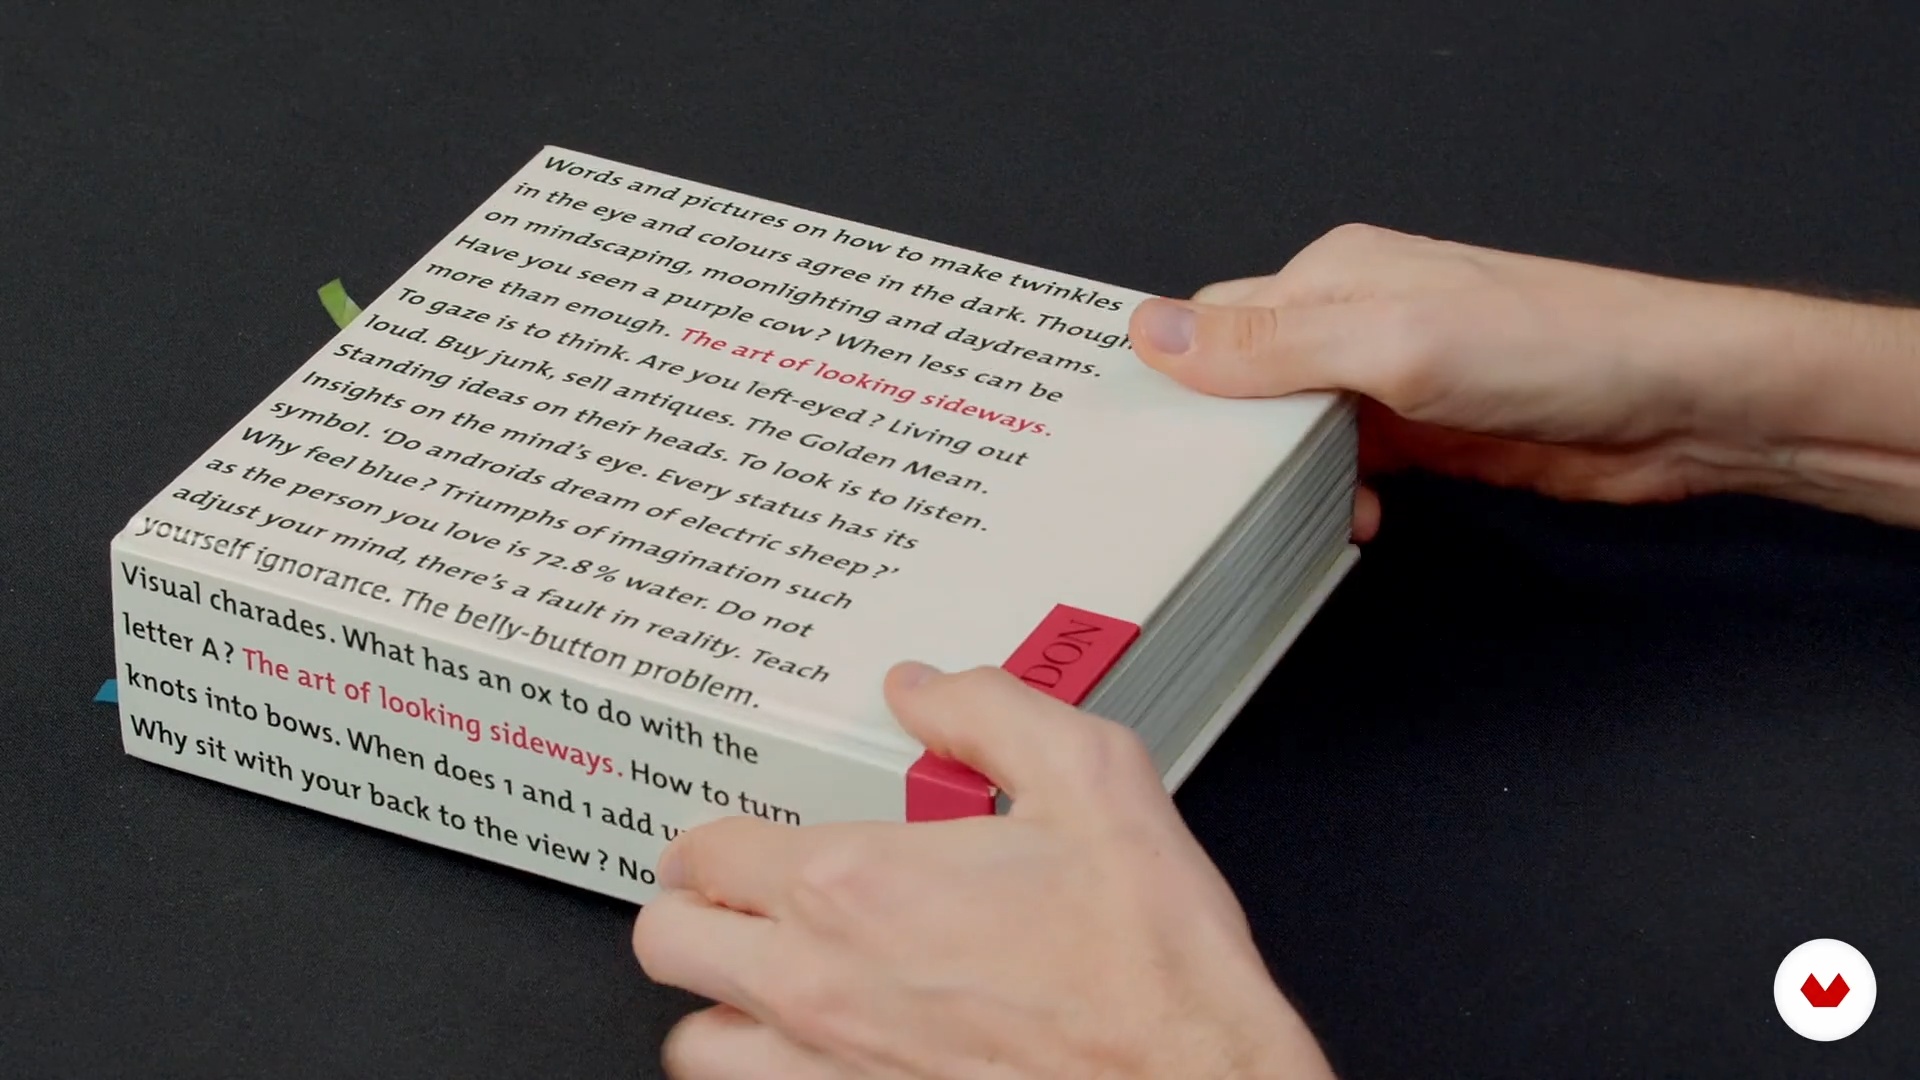 Words and pictures on how to make twinkles
in the eye and colours agree in the dark. Though
on mindscaping, moonlighting and daydreams.
Have you seen a purple cow? When less can be
more than enough. The art of looking sideways.
To gaze is to think. Are you left-eyed? Living out
loud. Buy junk, sell antiques. The Golden Mean.
Standing ideas on their heads. To look is to listen.
Insights on the mind's eye. Every status has its
symbol. 'Do androids dream of electric sheep?'
Why feel blue? Triumphs of imagination such
as the person you love is 72.8% water. Do not
adjust your mind, there's a fault in reality. Teach
yourself ignorance. The belly-button problem.
Visual charades. What has an ox to do with the
letter A? The art of looking sideways. How to turn
knots into bows. When does 1 and 1 add
Why sit with your back to the view? No
DON